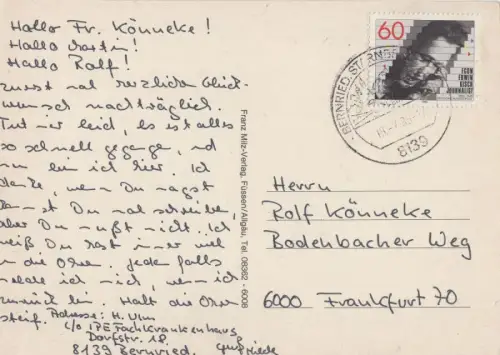 Hallo Fr. Könneke!
Hallo Martin!
Hallo Rolf!
zuerst mal herzlichen Glück-
wunsch nachträglich.
Tut mir leid, es ist alles
so schnell gegangen, und
nun bin ich hier. Ich
denke, wenn Du magst
kannst Du mal schreiben,
aber Du mußt nicht. Ich
weiß Du hast immer viel
um die Ohren. Jedenfalls
melde ich mich, wenn ich
zurück bin. Halt die Ohren
steif. Adresse: H. Ulm
c/o IPE Fachkrankenhaus
Dorfstr. 18
8139 Bernried.
Franz Milz-Verlag, Füssen/Allgäu, Tel. 08362 - 6008
60
EGON
ERWIN
KISCH
JOURNALIST
BERNRIED, STARNBERG
8139
Herrn
Rolf Könneke
Bodenbacher Weg
6000 Frankfurt 70